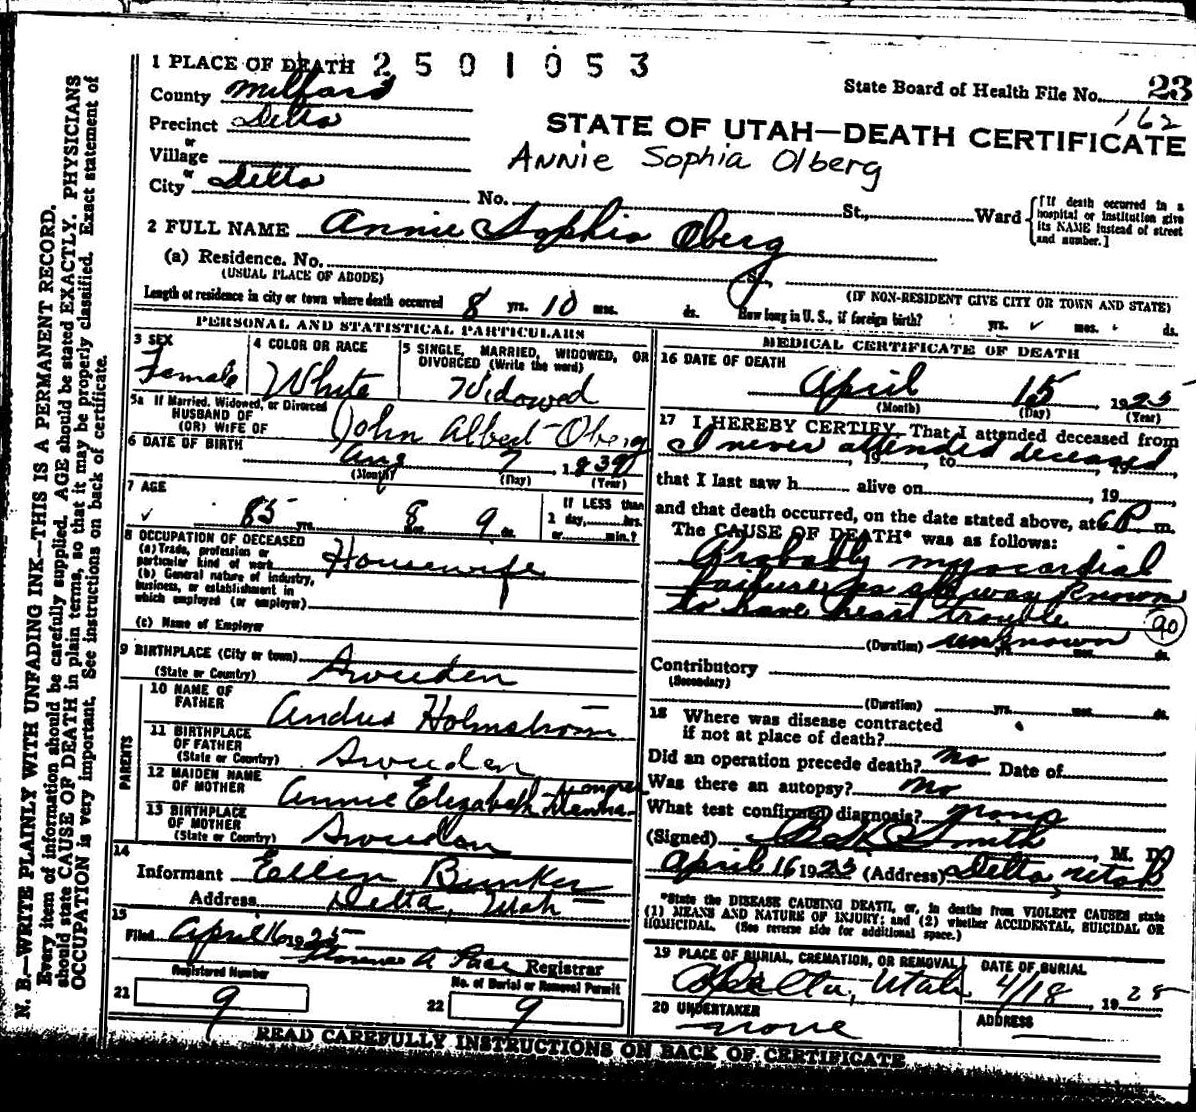 1 PLACE OF DEATH 2 5 0 1 0 5 3
State Board of Health File No. 23
162
County Millard
Precinct Delta
or
Village
or
City Delta
STATE OF UTAH—DEATH CERTIFICATE
ANNIE Sophia Olberg
No. St., Ward
[If death occurred in a
hospital or institution give
its NAME instead of street
and number.]
2 FULL NAME Annie Sophia Oberg
(a) Residence. No. St.
(USUAL PLACE OF ABODE)
(IF NON-RESIDENT GIVE CITY OR TOWN AND STATE)
Length of residence in city or town where death occurred 8 yrs. 10 mos. ds. How long in U. S., if foreign birth? yrs. mos. ds.
PERSONAL AND STATISTICAL PARTICULARS
3 SEX
Female
4 COLOR OR RACE
White
5 SINGLE, MARRIED, WIDOWED, OR
DIVORCED (Write the word)
Widowed
5a If Married, Widowed, or Divorced
HUSBAND OF
(OR) WIFE OF John Albert Oberg
6 DATE OF BIRTH Aug 7, 1839
(Month) (Day) (Year)
7 AGE
85 yrs. 8 mos. 9 ds.
If LESS than
1 day, hrs.
or min.?
8 OCCUPATION OF DECEASED
(a) Trade, profession or
particular kind of work Housewife
(b) General nature of industry,
business, or establishment in
which employed (or employer)
(c) Name of Employer
9 BIRTHPLACE (City or town)
(State or Country) Sweden
PARENTS
10 NAME OF
FATHER Andrus Holmstrom
11 BIRTHPLACE
OF FATHER
(State or Country) Sweden
12 MAIDEN NAME
OF MOTHER Annie Elizabeth
13 BIRTHPLACE
OF MOTHER
(State or Country) Sweden
14
Informant Ellen Bunker
Address Delta, Utah
15
Filed April 16 1925
Florence A Pace Registrar
Registered Number
21 9
No. of Burial or Removal Permit
22 9
MEDICAL CERTIFICATE OF DEATH
16 DATE OF DEATH
April 15 1925
(Month) (Day) (Year)
17 I HEREBY CERTIFY, That I attended deceased from
I never attended deceased
, 19 , to , 19 ,
that I last saw h alive on , 19
and that death occurred, on the date stated above, at 6 P m.
The CAUSE OF DEATH* was as follows:
Probably myocardial
failure as she was known
to have heart trouble
90
(Duration) unknown yrs. mos. ds.
Contributory
(Secondary)
(Duration) yrs. mos. ds.
18 Where was disease contracted
if not at place of death?
Did an operation precede death? no Date of
Was there an autopsy? no
What test confirmed diagnosis? none
(Signed) Smith, M. D.
April 16 1925 (Address) Delta, Utah
*State the DISEASE CAUSING DEATH, or, in deaths from VIOLENT CAUSES state
(1) MEANS AND NATURE OF INJURY; and (2) whether ACCIDENTAL, SUICIDAL OR
HOMICIDAL. (See reverse side for additional space.)
19 PLACE OF BURIAL, CREMATION, OR REMOVAL
Delta, Utah
DATE OF BURIAL
4/18 1925
20 UNDERTAKER
none
ADDRESS
READ CAREFULLY INSTRUCTIONS ON BACK OF CERTIFICATE
N. B.—WRITE PLAINLY WITH UNFADING INK—THIS IS A PERMANENT RECORD.
Every item of information should be carefully supplied. AGE should be stated EXACTLY. PHYSICIANS
should state CAUSE OF DEATH in plain terms, so that it may be properly classified. Exact statement of
OCCUPATION is very important. See instructions on back of certificate.